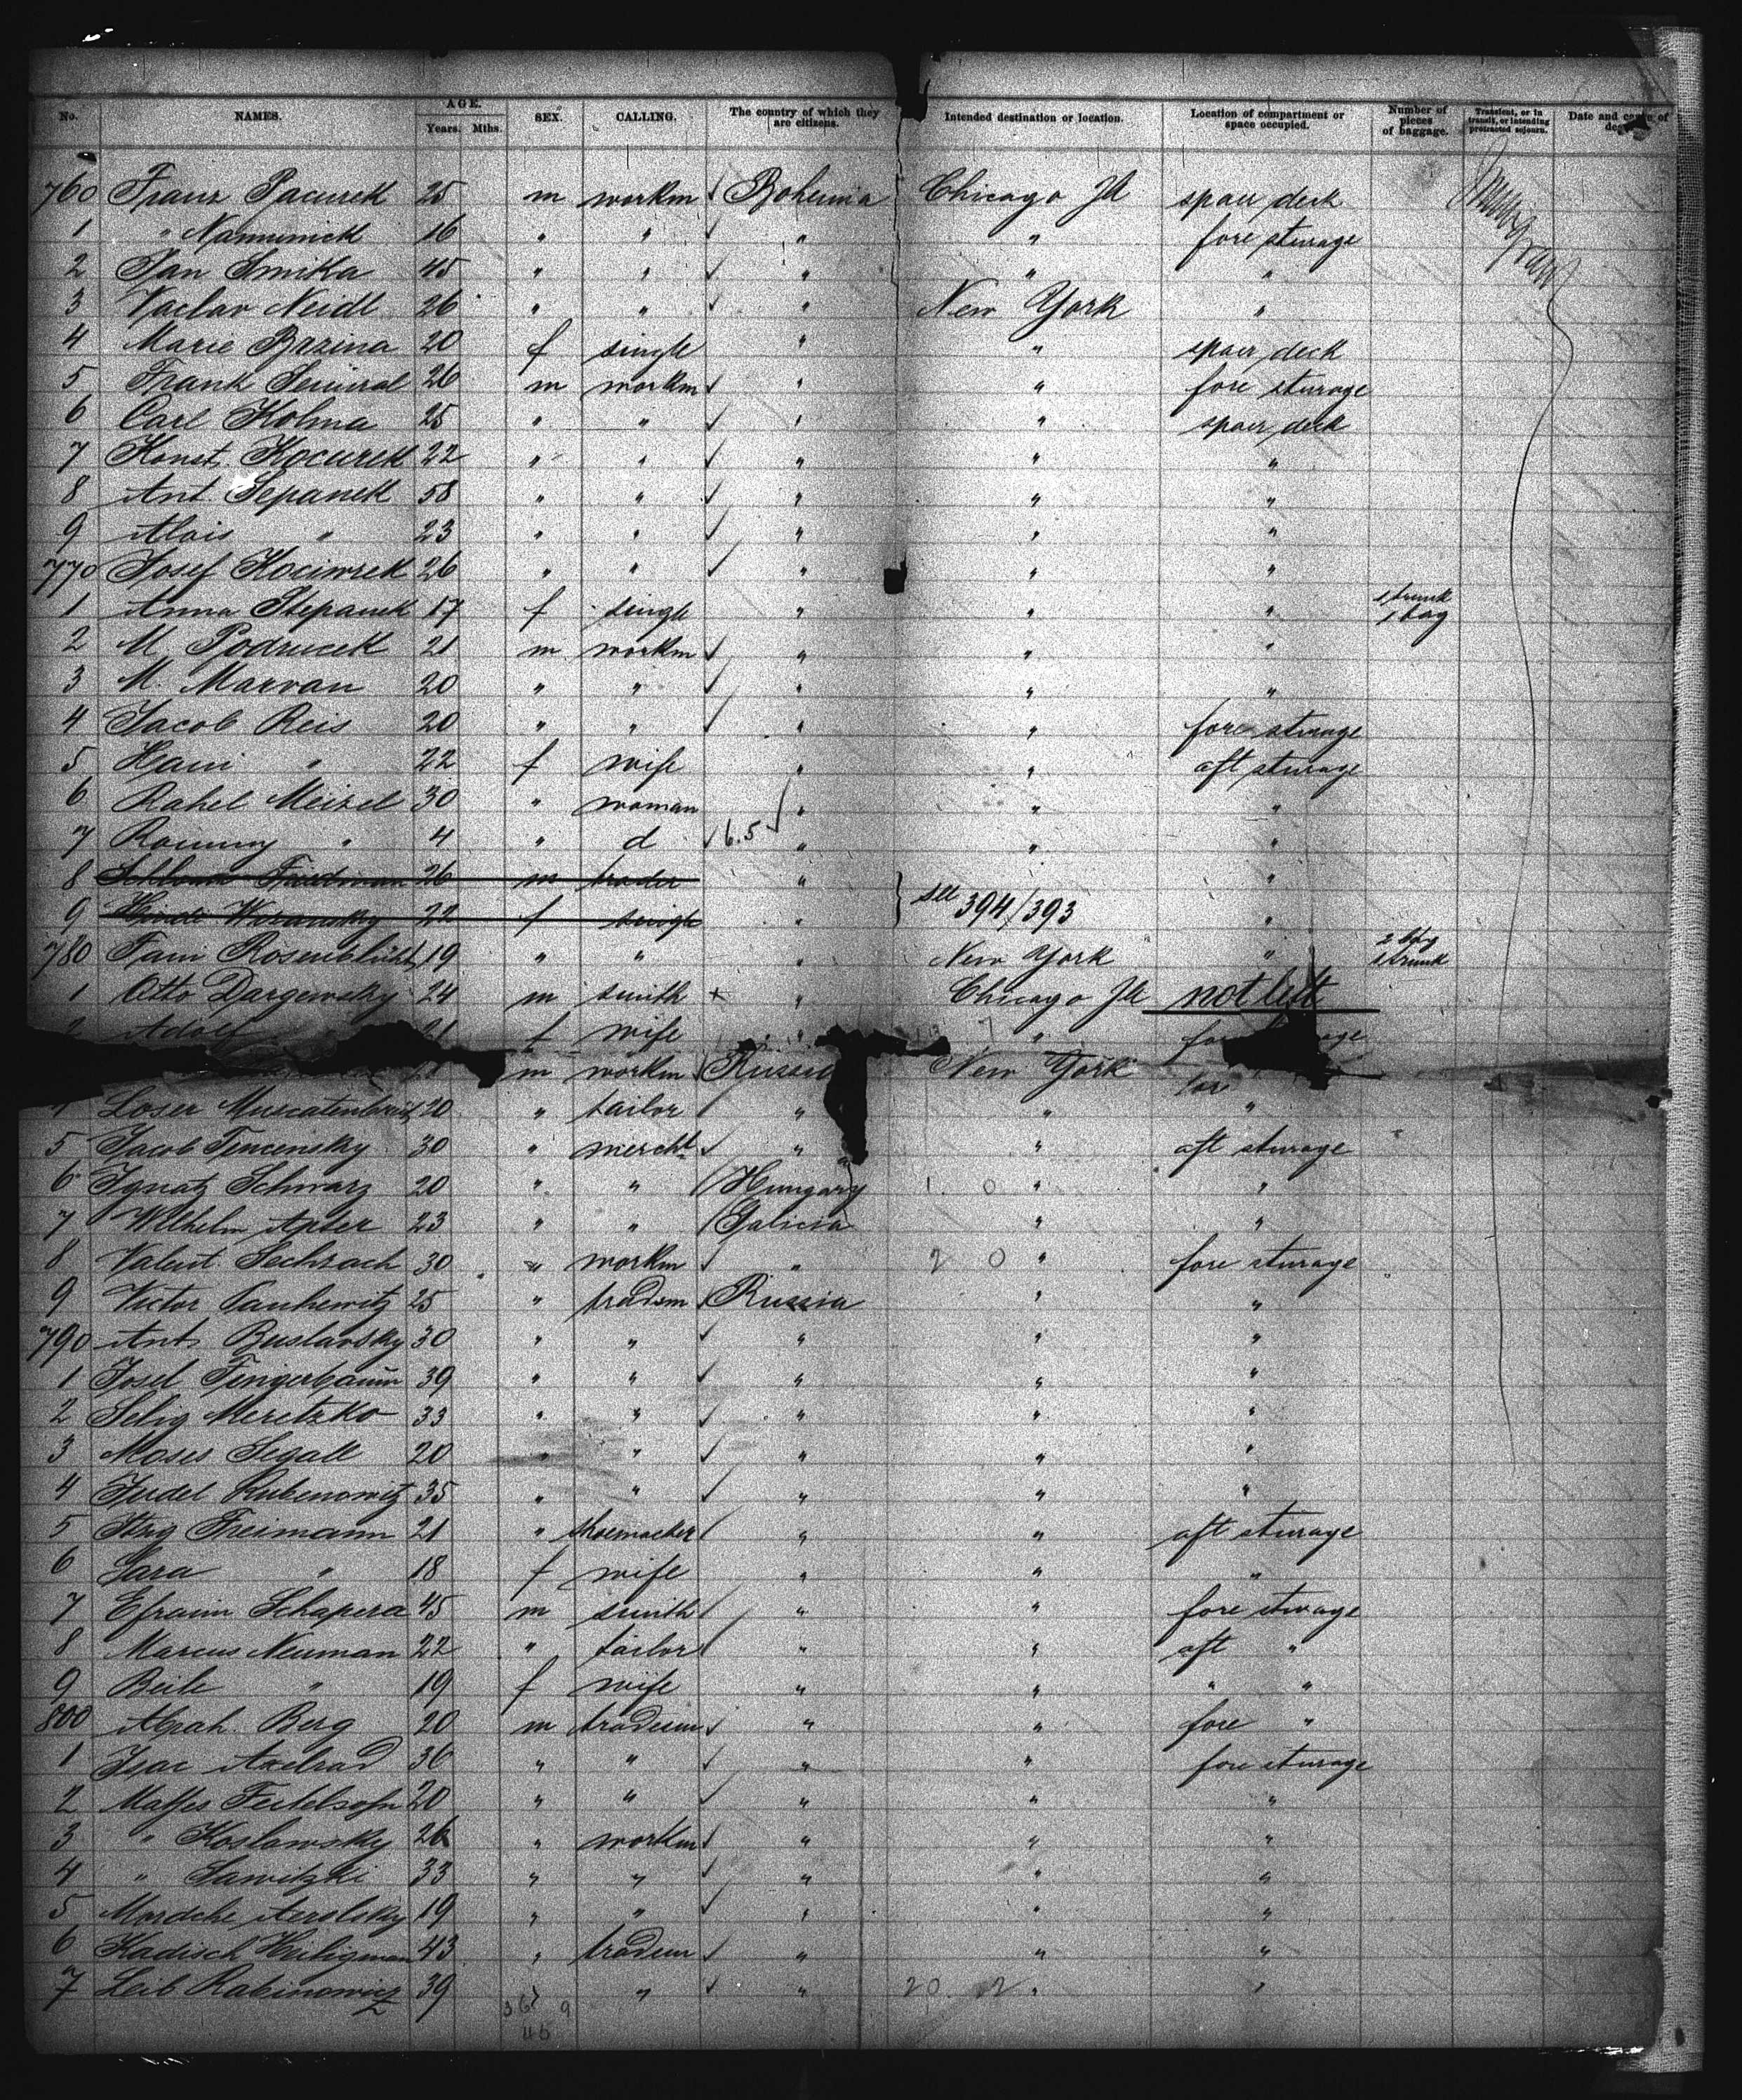 No. NAMES. AGE. Years. Mths. SEX. CALLING. The country of which they are citizens. Intended destination or location. Location of compartment or space occupied. Number of pieces of baggage. Transient, or in transit, or intending protracted sojourn. Date and cause of
760 Franz Pacurek 25 m workm Bohemia Chicago Ill spaer deck
1 " 16 " " " " fore sturage
2 Jan Smika 45 " " " " "
3 Vaclav Neidl 26 " " " New York "
4 Marie Brzina 20 f single " " spaer deck
5 Frank 26 m workm " " fore sturage
6 Carl Kolma 25 " " " " spaer deck
7 Konst. Kocurek 22 " " " " "
8 Ant. Sepanek 58 " " " " "
9 Alois " 23 " " " " "
770 Josef 26 " " " " "
1 Anna Stepanek 17 f single " " " 1 trunk 1 bag
2 M. Podrucek 21 m workm " " "
3 M. Marvan 20 " " " " "
4 Jacob Reis 20 " " " " fore sturage
5 Hani " 22 f wife " " aft sturage
6 Rahel Meizel 30 " woman " " "
7 " 4 " d 6.5 " " "
8 Friedman 26 m trader " "
9 22 f single " see 394/393 "
780 Fani Rosenblüht 19 " " " New York " trunk
1 Otto Dargewsky 24 m smith x " Chicago Ill not left
2 Adolf 21 f wife " "
m workm Russia New York fore
4 Loser 20 " tailor " " "
5 Jacob Tencensky 30 " mercht " " aft sturage
6 Ignatz Schwarz 20 " " Hungary 1 0 " "
7 Wilhelm Apter 23 " " Galicia " "
8 Valent. Sechsach 30 " workm " 2 0 " fore sturage
9 Victor 25 " tradsm Russia " "
790 Ant. Buslavsky 30 " " " " "
1 Josel Fingerbaum 39 " " " " "
2 Selig Meretzko 33 " " " " "
3 Moses Segall 20 " " " " "
4 Judel Rubenowitz 35 " " " " "
5 Freimann 21 " shoemacker " " aft sturage
6 Sara " 18 f wife " " "
7 Efraim Schapera 45 m smith " " fore sturage
8 Marcus Neuman 22 " tailor " " aft "
9 Beile " 19 f wife " " " "
800 Abrah. Berg 20 m tradesm " " fore "
1 Isac Axelrad 36 " " " " fore sturage
2 Maſses Feitelsohn 20 " " " " "
3 " Koslawsky 26 " workm " " "
4 " Sawitzki 33 " " " " "
5 Mordche 19 " " " " "
6 Kadisch Heiligman 43 " tradesm " " "
7 Leib Rabinowicz 39 " " " 20 2 " "